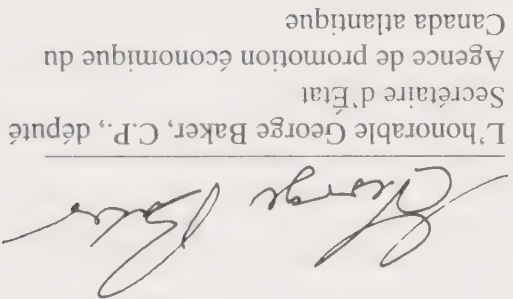 George Baker
L'honorable George Baker, C.P., député
Secrétaire d'État
Agence de promotion économique du
Canada atlantique